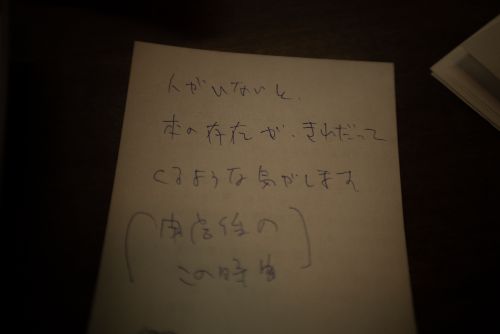 人がいないと、
本の存在が、きわだって
くるような気がします
(閉店後の
この時間)